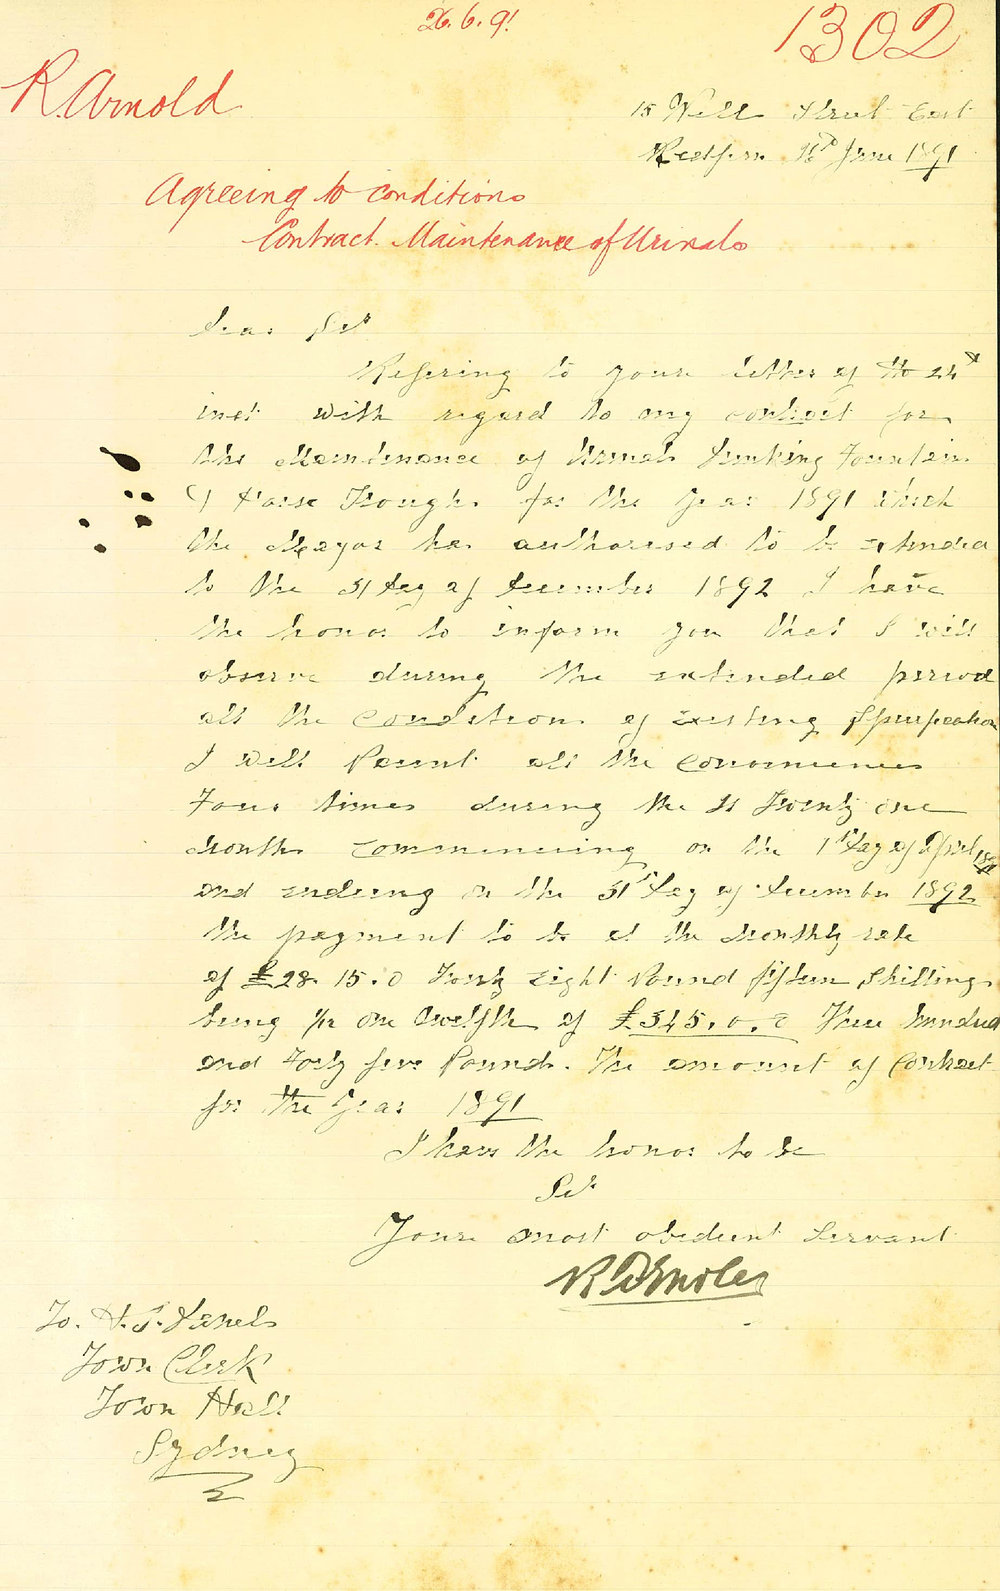 26.6.91
1302
R. Arnold
15 Well Street East
Redfern 26th June 1891
Agreeing to conditions
Contract. Maintenance of Urinals
Dear Sir
Refering to your letter of the 24th
inst with regard to my contract for
the Maintenance of Urinals Drinking Fountain
& Horse Troughs for the Year 1891 which
the Mayor has authorised to be extended
to the 31 Day of December 1892 I have
the honor to inform you that I will
observe during the extended period
all the Conditions of Existing Specification
I will Paint all the Conveniences
Four times during the 21 Twenty one
Months commencing on the 1st Day of April 1891
and ending on the 31st Day of December 1892
the payment to be at the Monthly rate
of £28. 15. 0 Twenty Eight Pound fifteen Shillings
being 1/12 One twelfth of £345. 0. 0 Three hundred
and Forty five Pounds. The amount of Contract
for the Year 1891
I have the honor to be
Sir
Yours most obedient Servant
R Arnold
To. H. J. Daniels
Town Clerk
Town Hall
Sydney